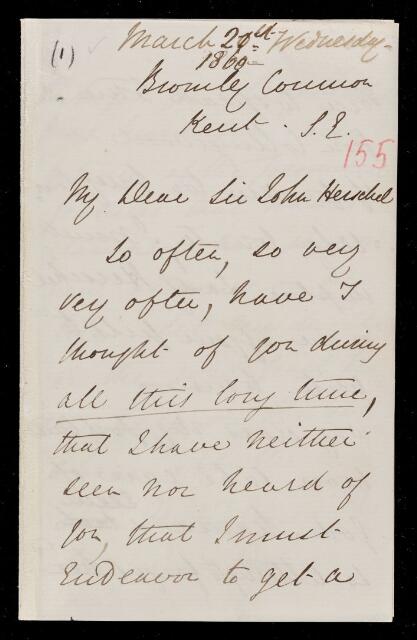 (1)
March 29th Wednesday -
1869
Bromley Common
Kent - S.E.
155
My Dear Sir John Herschel
So often, so very
very often, have I
thought of you during
all this long time,
that I have neither
seen nor heard of
you, that I must
Endeavor to get a